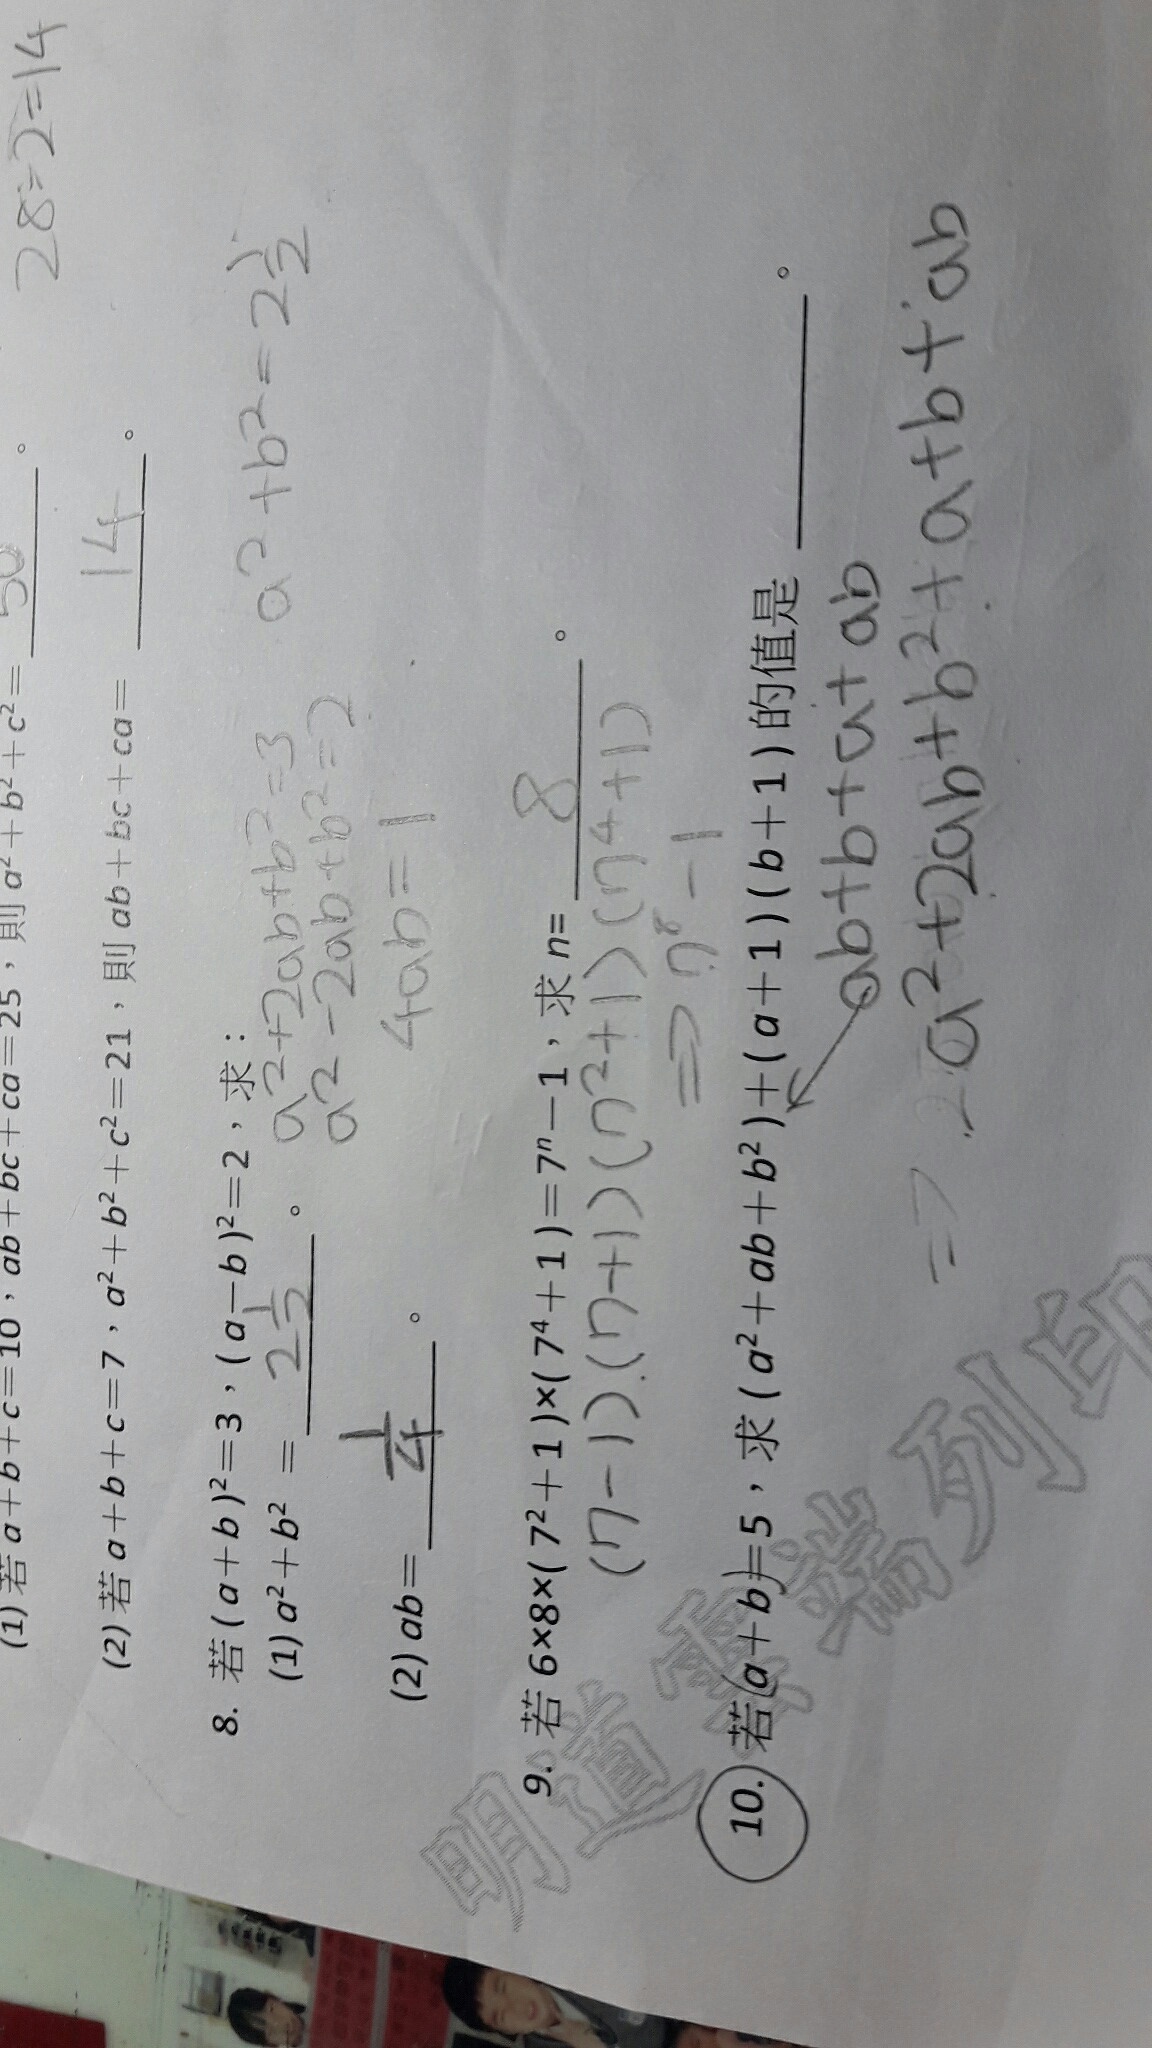 (1)若 a+b+c=10，ab+bc+ca=25，則 a²+b²+c²= 50 。
28÷2=14
(2)若 a+b+c=7，a²+b²+c²=21，則 ab+bc+ca= 14 。
8. 若(a+b)²=3，(a−b)²=2，求：
(1) a²+b² = 2 1/2 。
a²+2ab+b²=3
a²−2ab+b²=2
a²+b²=2 1/2
4ab=1
(2) ab= 1/4 。
9. 若 6×8×(7²+1)×(7⁴+1)=7ⁿ−1，求 n= 8 。
(7−1)(7+1)(7²+1)(7⁴+1)
=> 7⁸−1
10. 若(a+b)=5，求(a²+ab+b²)+(a+1)(b+1)的值是 。
ab+b+a+ab
=> a²+2ab+b²+a+b+ab
明道雲端列印